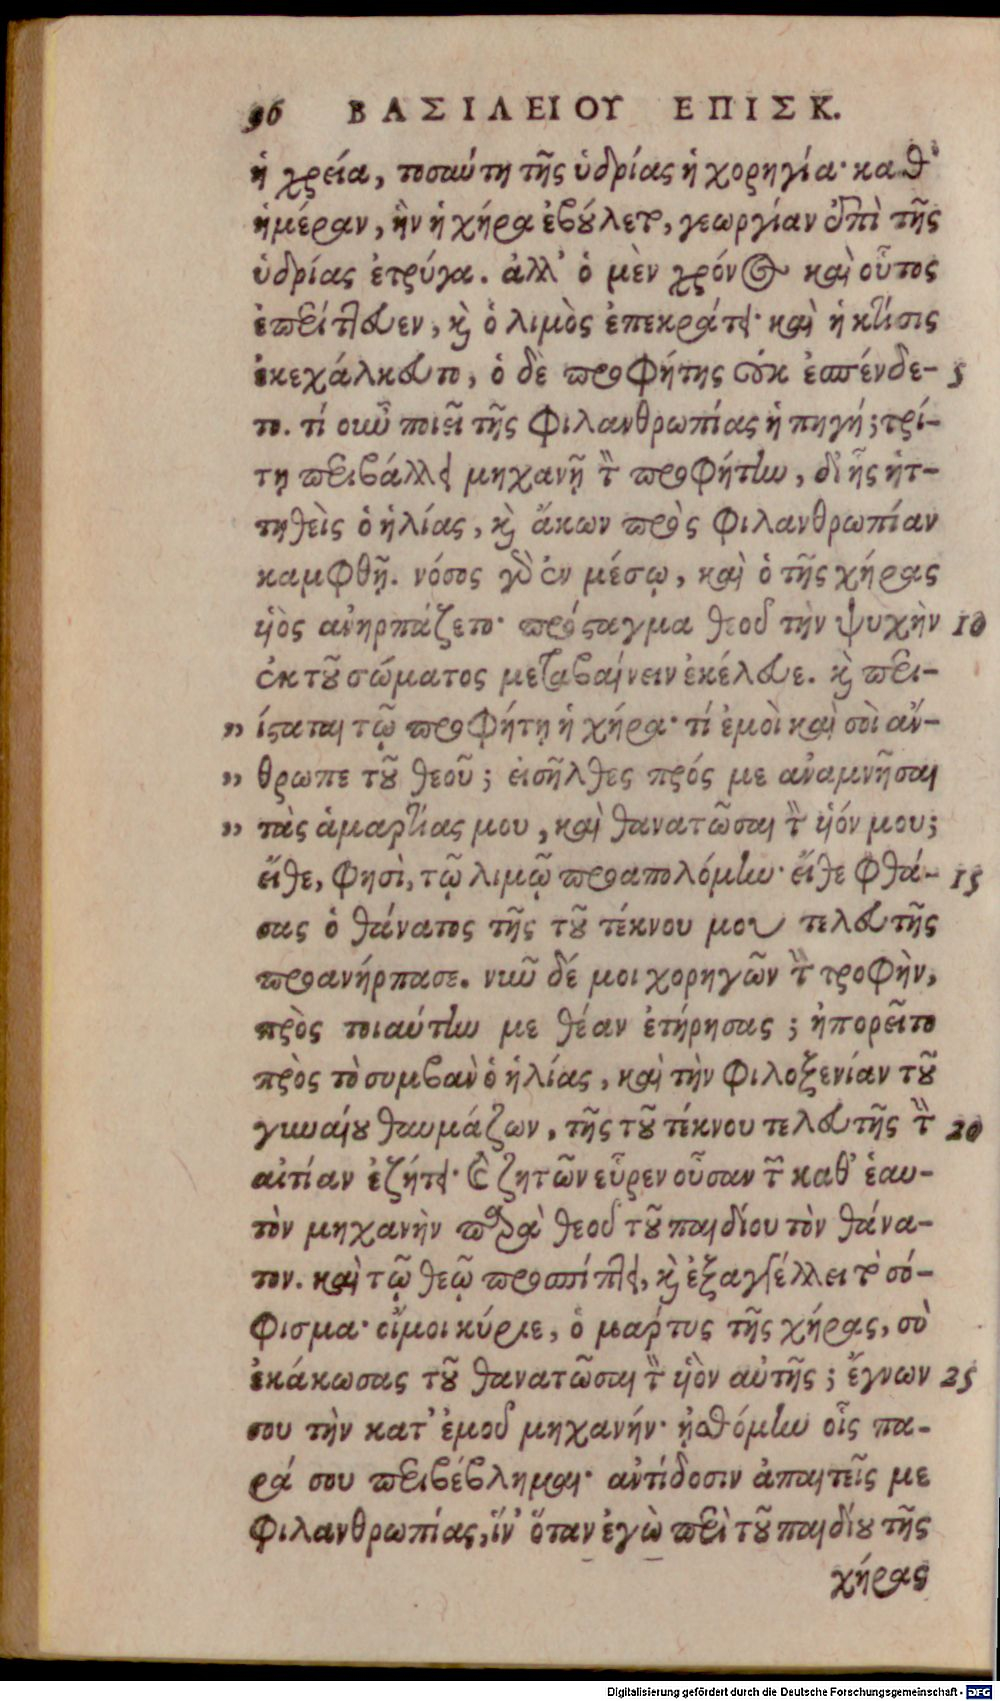 96 ΒΑΣΙΛΕΙΟΥ ΕΠΙΣΚ.
ἡ χρεία, τοσαύτη τῆς ὑδρίας ἡ χορηγία· καθ'
ἡμέραν, ἣν ἡ χήρα ἐβούλετο, γεωργίαν ἐπὶ τῆς
ὑδρίας ἐτρύγα. ἀλλ' ὁ μὲν χρόνος καὶ οὗτος
ἐπερίττευεν, καὶ ὁ λιμὸς ἐπεκράτει· καὶ ἡ κτίσις
ἐκεχάλκευτο, ὁ δὲ προφήτης οὐκ ἐσπένδε- 5
το. τί οὖν ποιεῖ τῆς φιλανθρωπίας ἡ πηγή; τρί-
τῃ περιβάλλει μηχανῇ τὸν προφήτην, δι ἧς ἡτ-
τηθεὶς ὁ ἠλίας, καὶ ἄκων πρὸς φιλανθρωπίαν
καμφθῇ. νόσος γὰρ ἐν μέσῳ, καὶ ὁ τῆς χήρας
ὑὸς ἀνηρπάζετο· πρόσταγμα θεοῦ τὴν ψυχὴν 10
ἐκ τοῦ σώματος μεταβαίνειν ἐκέλευε. καὶ περι-
„ ίσταται τῷ προφήτῃ ἡ χήρα· τί ἐμοὶ καὶ σοὶ ἄν-
„ θρωπε τοῦ θεοῦ; εἰσῆλθες πρός με ἀναμνῆσαι
„ τὰς ἁμαρτίας μου, καὶ θανατῶσαι τὸν ὑόν μου;
εἴθε, φησὶ, τῷ λιμῷ προαπολόμην· εἴθε φθά- 15
σας ὁ θάνατος τῆς τοῦ τέκνου μου τελευτῆς
προανήρπασε. νῦν δέ μοι χορηγῶν τὴν τροφὴν,
πρὸς τοιαύτην με θέαν ἐτήρησας; ἠπορεῖτο
πρὸς τὸ συμβὰν ὁ ἠλίας, καὶ τὴν φιλοξενίαν τοῦ
γυναίου θαυμάζων, τῆς τοῦ τέκνου τελευτῆς τὴν 20
αἰτίαν ἐζήτει· καὶ ζητῶν εὗρεν οὖσαν τὴν καθ' ἑαυ-
τὸν μηχανὴν παρὰ θεοῦ τοῦ παιδίου τὸν θάνα-
τον. καὶ τῷ θεῷ προσπίπτει, καὶ ἐξαγγέλλει τὸ σό-
φισμα· οἴμοι κύριε, ὁ μάρτυς τῆς χήρας, σὺ
ἐκάκωσας τοῦ θανατῶσαι τὸν ὑὸν αὐτῆς; ἔγνων 25
σου τὴν κατ' ἐμοῦ μηχανήν· ᾐσθόμην οἷς πα-
ρά σου περιβέβλημαι· ἀντίδοσιν ἀπαιτεῖς με
φιλανθρωπίας, ἵν' ὅταν ἐγὼ περὶ τοῦ παιδίου τῆς
χήρας
Digitalisierung gefördert durch die Deutsche Forschungsgemeinschaft - DFG